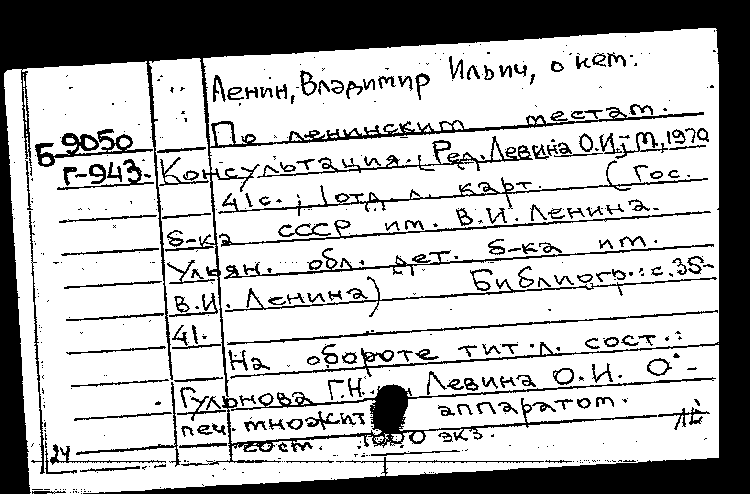 Ленин, Владимир Ильич, о нем.
Б-9050 По ленинским местам.
Г-943. Консультация. [Ред. Левина О.И.] М., 1970
41 с.; 1 отд. л. карт. (Гос.
б-ка СССР им. В.И. Ленина.
Ульян. обл. дет. б-ка им.
В.И. Ленина) Библиогр.: с. 35-
41.
На обороте тит. л. сост.:
Гульнова Г.Н., Левина О.И. О-
печ. множит аппаратом.
1000 экз.
24